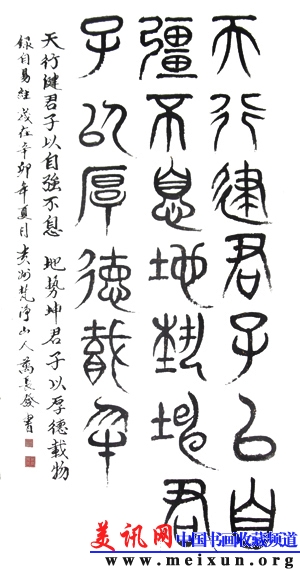 天行健君子以自
彊不息地埶坤君
子以厚德載物
天行健君子以自強不息 地勢坤君子以厚德載物
錄自易經 歲在辛卯年夏月 贵州梵净山人 萬登書
美讯网 中国书画收藏频道
www.meixun.org